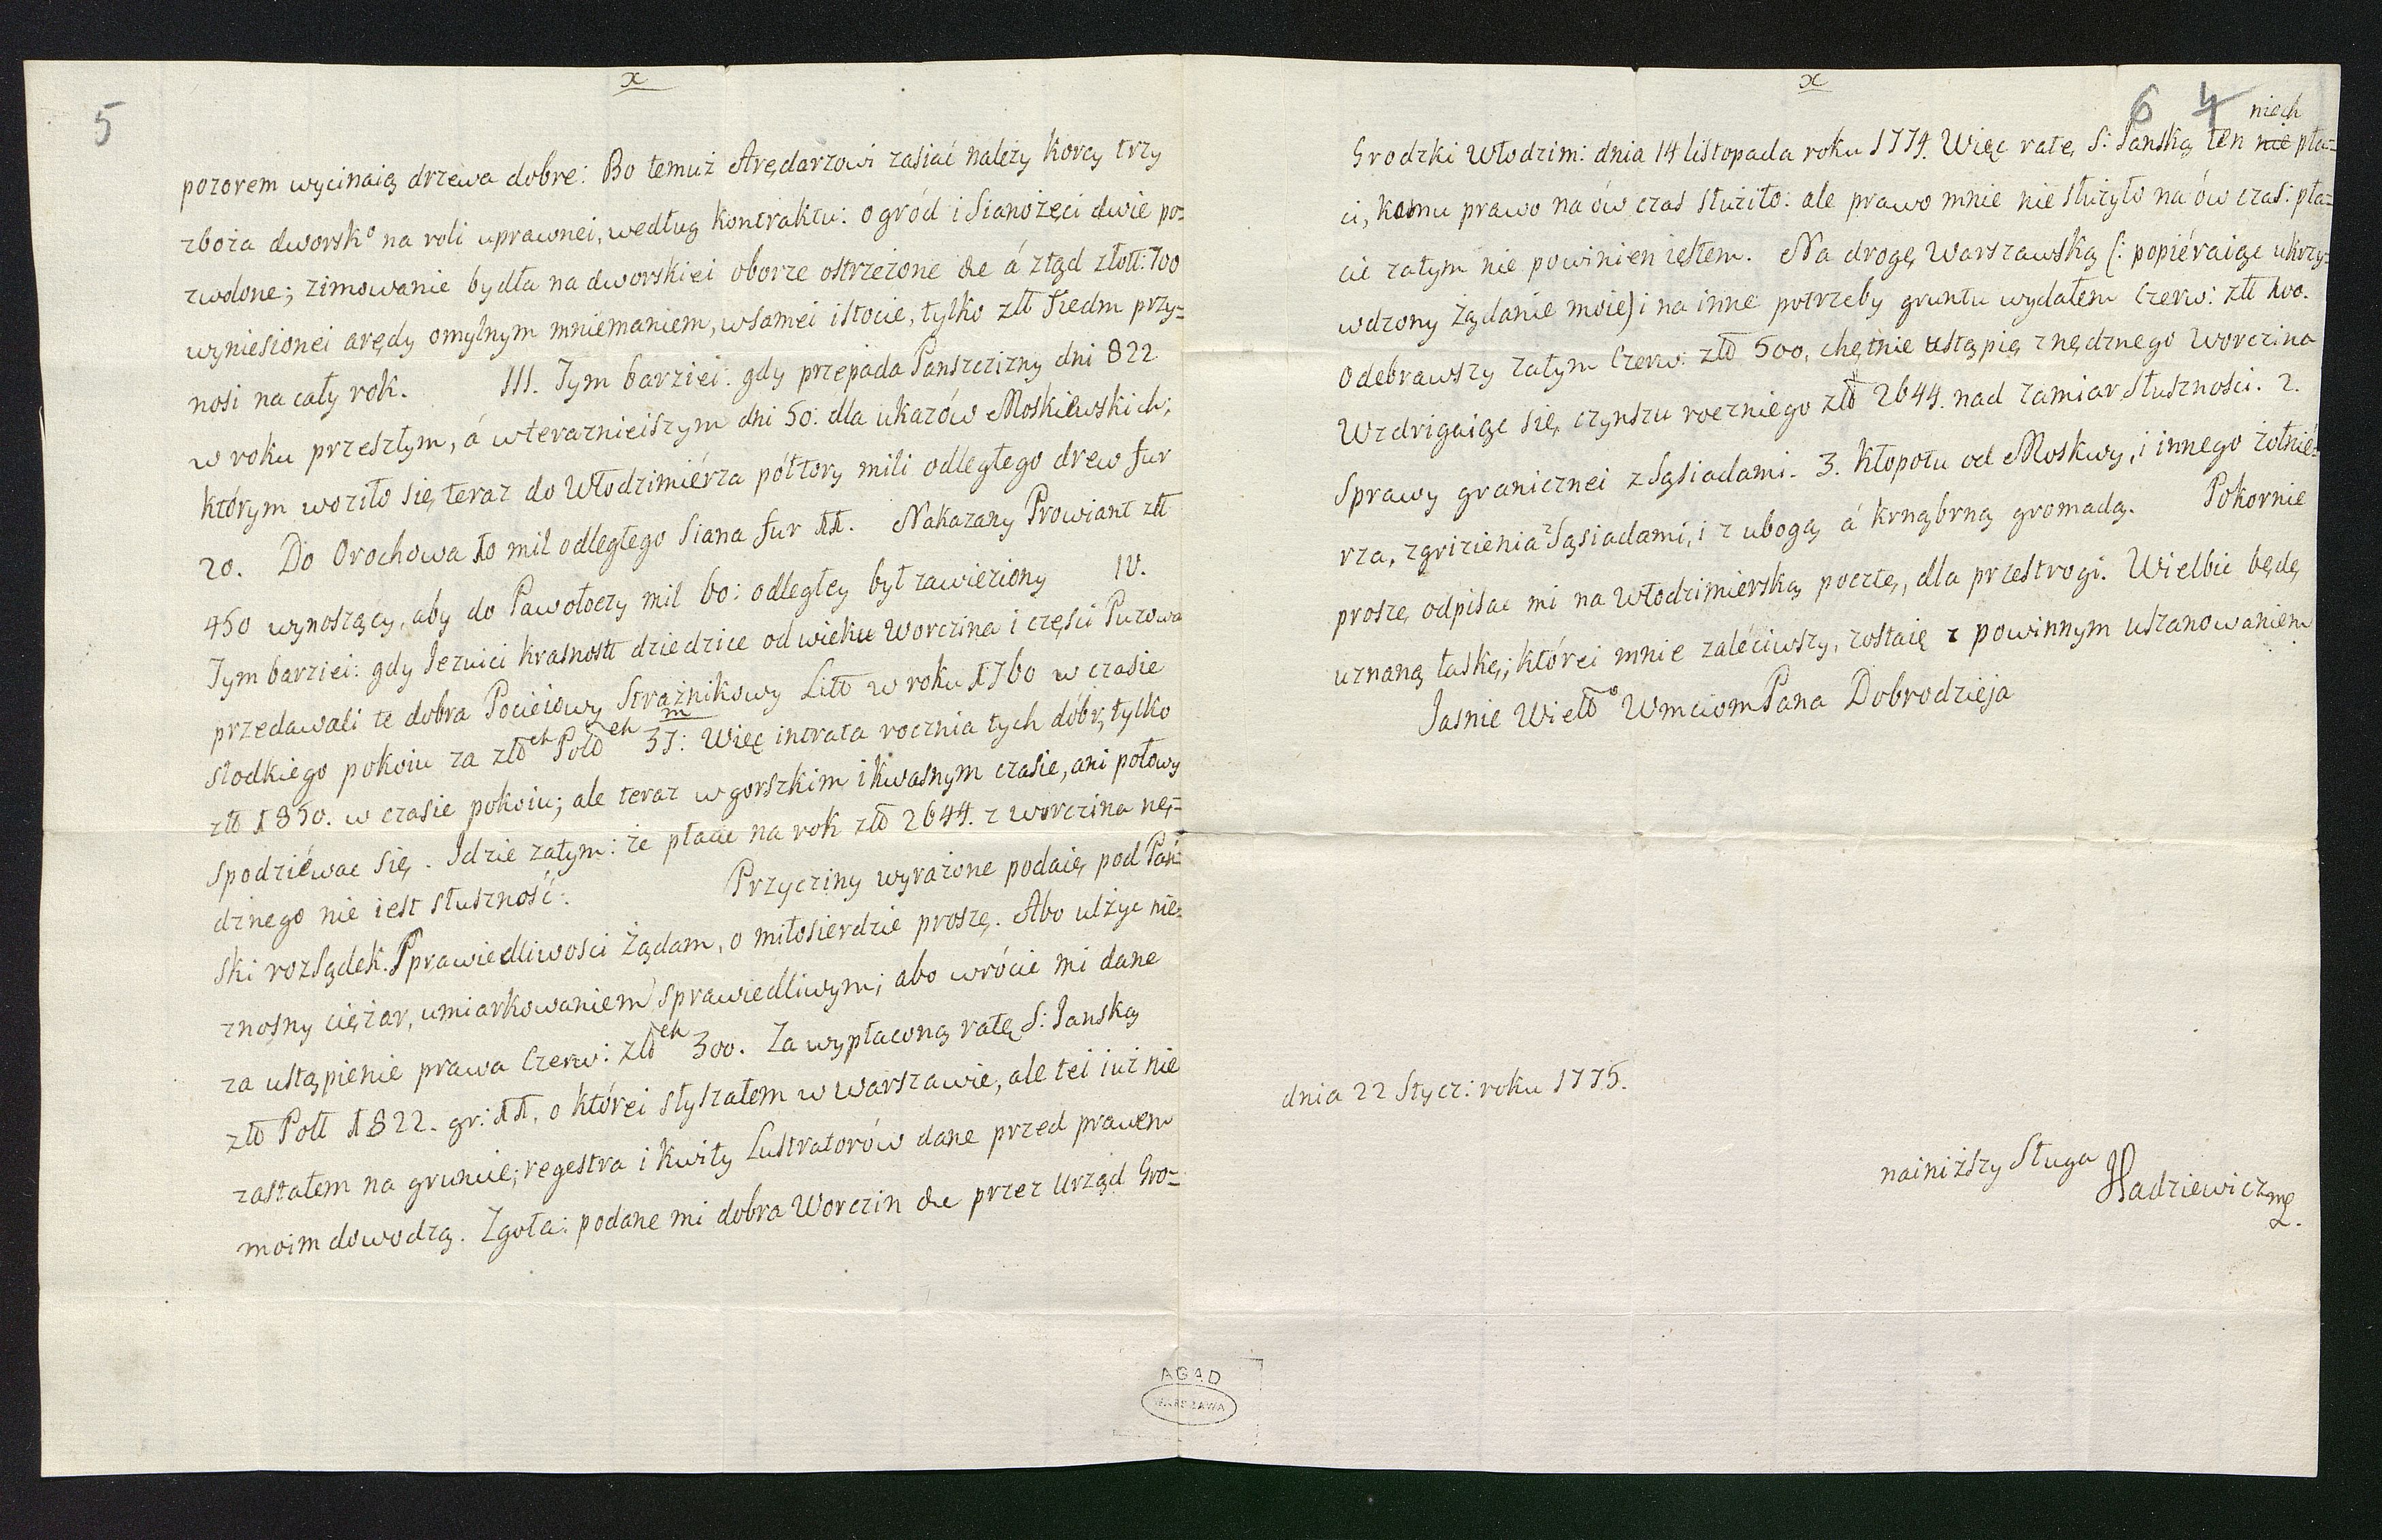 x
5
pozorem wycinaią drzewa dobre: Bo temuż Arędarzowi zasiać należy korcy trzy
zboża dworsk° na roli uprawnei, według kontraktu: ogród i Sianożęci dwie po=
zwolone; zimowanie bydła na dworskiei oborze ostrzeżone &c á ztąd złott: 700
wyniesionei arędy omylnym mniemaniem, wsamei istocie, tylko złł Siedm przy=
nosi na cały rok. III. Tym barziei: gdy przepada Panszczizny dni 822
w roku przeszłym, á w teraznieiszym dni 50: dla ukazów Moskiewskich;
którym woziło się teraz do Włodzimiérza półtory mili odległego drew fur
20. Do Orochowa 10 mil odległego Siana fur 11. Nakazany Prowiant złł
450 wynoszący, aby do Pawołoczy mil 60: odległey był zawieziony IV.
Tym barziei: gdy Iezuici krasnostt dziedzice od wieku Worczina i części Puzowa
przedawali te dobra Pocieiowy Strażnikowy Litt w roku 1760 w czasie
słodkiego pokoiu za złł ch Poll ch 37 m: Więc intrata rocznia tych dóbr, tylko
złł 1850. w czasie pokoiu; ale teraz w gorszkim i kwasnym czasie, ani połowy
spodziéwac się. Idzie zatym: że płacic na rok złł 2644. z worczina nę=
dznego nie iest słuszność: Przycziny wyrażone podaię pod Pań=
ski rozsądek. Sprawiedliwosci żądam, o miłosierdzie proszę. Abo ulżyc nie=
znosny ciężar, umiarkowaniem sprawiedliwym; abo wrócic mi dane
za ustąpienie prawa Czerw: złł ch 300. Za wypłaconą ratę S: Ianską
złł Poll 1822. gr: 11, o którei słyszałem w Warszawie, ale tei iuż nie
zastałem na gruncie; regestra i kwity Lustratorów dane przed prawem
moim dowodzą. Zgoła: podane mi dobra Worczin &c przez Urząd Gro=
x
6 4
niech
Grodzki Włodzim: dnia 14 listopada roku 1774. Więc ratę S: Ianską ten nie pła=
ci, komu prawo na ów czas służiło: ale prawo mnie nie służyło na ów czas: pła=
cic zatym nie powinien iestem. Na drogę Warszawską (: popiéraiąc ukrzy=
wdzony żądanie moie) i na inne potrzeby gruntu wydałem Czerw: złł 100.
Odebrawszy zatym Czerw: złł 500, chętnie ustąpię z nędznego Worczina
Wzdrigaiąc się czynszu roczniego złł 2644. nad zamiar słusznosci. 2.
Sprawy granicznei z Sąsiadami. 3. Kłopotu od Moskwy, i innego żołnié=
rza, zgrizienia z Sąsiadami, i z ubogą á krnąbrną gromadą. Pokornie
proszę odpisac mi na Włodzimierską pocztę, dla przestrogi. Wielbic będę
uznaną łaskę; którei mnie zaléciwszy, zostaię z powinnym uszanowaniem
Jasnie Wiell° WmciomPana Dobrodzieja
dnia 22 Stycz: roku 1775.
nainiższy Sługa
Hadziewicz
AGAD
WARSZAWA